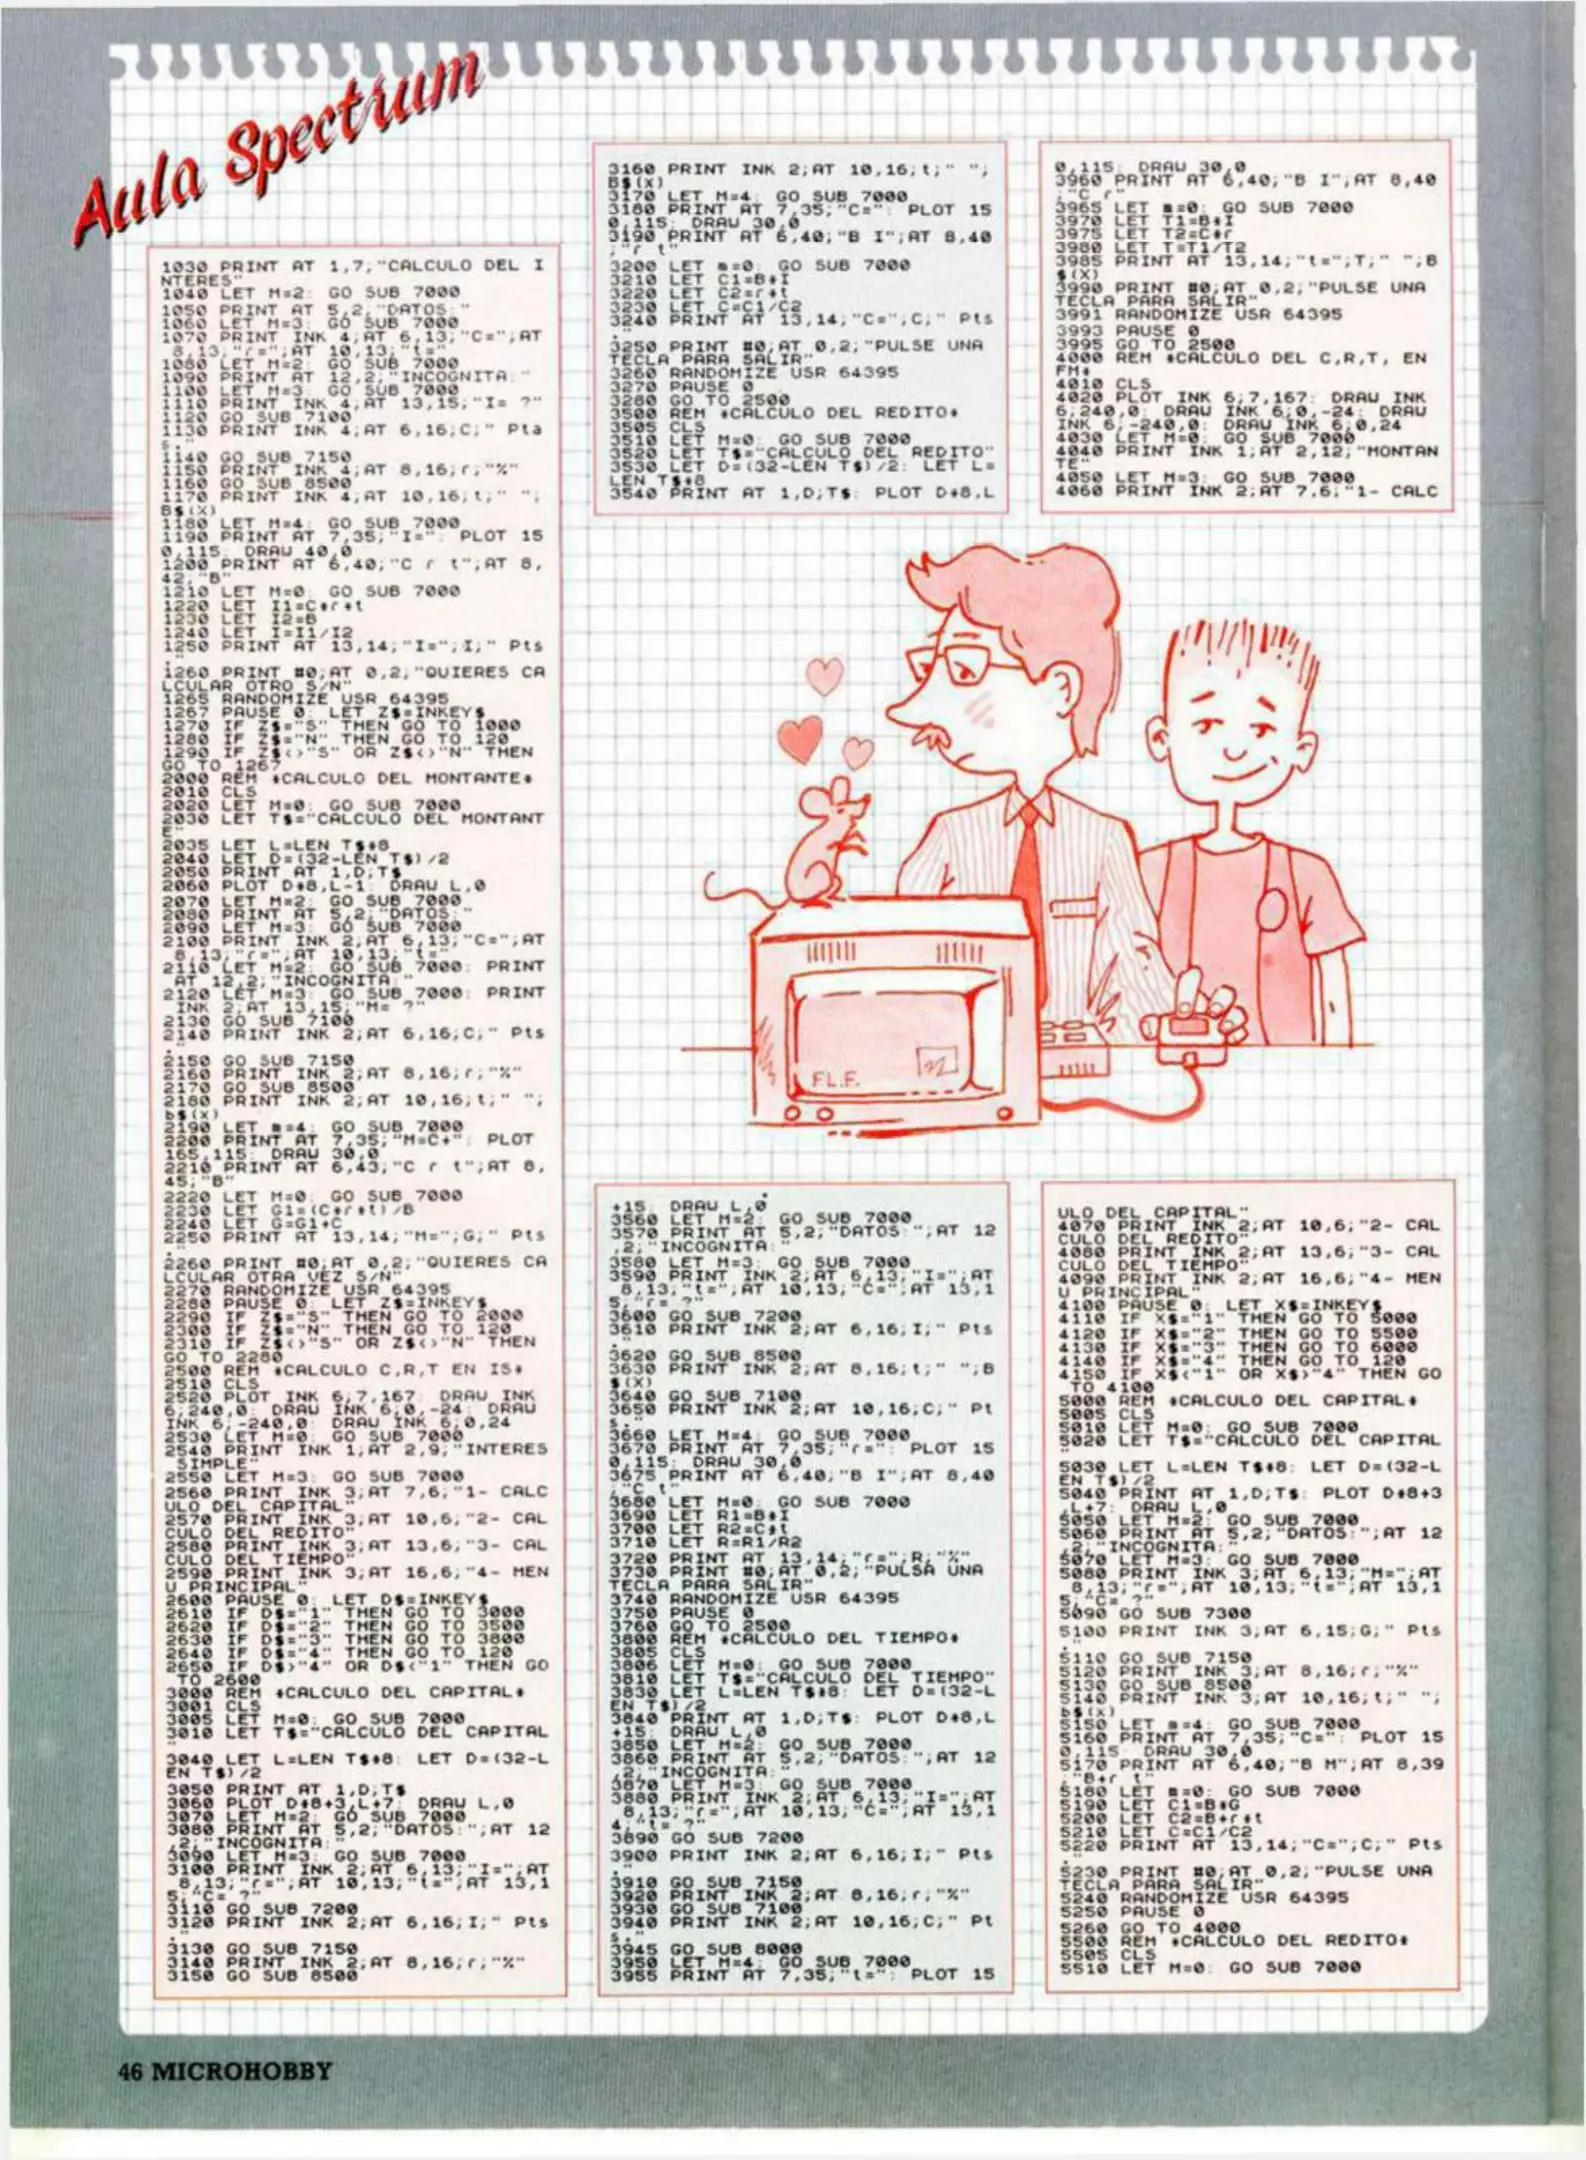 Aula Spectrum
1030 PRINT AT 1,7;"CALCULO DEL I
NTERES"
1040 LET M=2: GO SUB 7000
1050 PRINT AT 5,2;"DATOS:"
1060 LET M=3: GO SUB 7000
1070 PRINT INK 4;AT 6,13;"C=";AT
8,13;"r=";AT 10,13;"t="
1080 LET M=2: GO SUB 7000
1090 PRINT AT 12,2;"INCOGNITA:"
1100 LET M=3: GO SUB 7000
1110 PRINT INK 4;AT 13,15;"I= ?"
1120 GO SUB 7100
1130 PRINT INK 4;AT 6,16;C;" Pta
s."
1140 GO SUB 7150
1150 PRINT INK 4;AT 8,16;r;"%"
1160 GO SUB 8500
1170 PRINT INK 4;AT 10,16;t;" ";
B$(X)
1180 LET M=4: GO SUB 7000
1190 PRINT AT 7,35;"I=": PLOT 15
0,115: DRAW 40,0
1200 PRINT AT 6,40;"C r t";AT 8,
42;"B"
1210 LET M=0: GO SUB 7000
1220 LET I1=C*r*t
1230 LET I2=B
1240 LET I=I1/I2
1250 PRINT AT 13,14;"I=";I;" Pts
."
1260 PRINT #0;AT 0,2;"QUIERES CA
LCULAR OTRO S/N"
1265 RANDOMIZE USR 64395
1267 PAUSE 0: LET Z$=INKEY$
1270 IF Z$="S" THEN GO TO 1000
1280 IF Z$="N" THEN GO TO 120
1290 IF Z$<>"S" OR Z$<>"N" THEN
GO TO 1267
2000 REM *CALCULO DEL MONTANTE*
2010 CLS
2020 LET M=0: GO SUB 7000
2030 LET T$="CALCULO DEL MONTANT
E"
2035 LET L=LEN T$*8
2040 LET D=(32-LEN T$)/2
2050 PRINT AT 1,D;T$
2060 PLOT D*8,L-1: DRAW L,0
2070 LET M=2: GO SUB 7000
2080 PRINT AT 5,2;"DATOS:"
2090 LET M=3: GO SUB 7000
2100 PRINT INK 2;AT 6,13;"C=";AT
8,13;"r=";AT 10,13;"t="
2110 LET M=2: GO SUB 7000: PRINT
AT 12,2;"INCOGNITA:"
2120 LET M=3: GO SUB 7000: PRINT
INK 2;AT 13,15;"M= ?"
2130 GO SUB 7100
2140 PRINT INK 2;AT 6,16;C;" Pts
."
2150 GO SUB 7150
2160 PRINT INK 2;AT 8,16;r;"%"
2170 GO SUB 8500
2180 PRINT INK 2;AT 10,16;t;" ";
b$(x)
2190 LET m=4: GO SUB 7000
2200 PRINT AT 7,35;"M=C+": PLOT
165,115: DRAW 30,0
2210 PRINT AT 6,43;"C r t";AT 8,
45;"B"
2220 LET M=0: GO SUB 7000
2230 LET G1=(C*r*t)/B
2240 LET G=G1+C
2250 PRINT AT 13,14;"M=";G;" Pts
."
2260 PRINT #0;AT 0,2;"QUIERES CA
LCULAR OTRA VEZ S/N"
2270 RANDOMIZE USR 64395
2280 PAUSE 0: LET Z$=INKEY$
2290 IF Z$="S" THEN GO TO 2000
2300 IF Z$="N" THEN GO TO 120
2310 IF Z$<>"S" OR Z$<>"N" THEN
GO TO 2280
2500 REM *CALCULO C,R,T EN IS*
2510 CLS
2520 PLOT INK 6;7,167: DRAW INK
6;240,0: DRAW INK 6;0,-24: DRAW
INK 6;-240,0: DRAW INK 6;0,24
2530 LET M=0: GO SUB 7000
2540 PRINT INK 1;AT 2,9;"INTERES
SIMPLE"
2550 LET M=3: GO SUB 7000
2560 PRINT INK 3;AT 7,6;"1- CALC
ULO DEL CAPITAL"
2570 PRINT INK 3;AT 10,6;"2- CAL
CULO DEL REDITO"
2580 PRINT INK 3;AT 13,6;"3- CAL
CULO DEL TIEMPO"
2590 PRINT INK 3;AT 16,6;"4- MEN
U PRINCIPAL"
2600 PAUSE 0: LET D$=INKEY$
2610 IF D$="1" THEN GO TO 3000
2620 IF D$="2" THEN GO TO 3500
2630 IF D$="3" THEN GO TO 3800
2640 IF D$="4" THEN GO TO 120
2650 IF D$>"4" OR D$<"1" THEN GO
TO 2600
3000 REM *CALCULO DEL CAPITAL*
3001 CLS
3005 LET M=0: GO SUB 7000
3010 LET T$="CALCULO DEL CAPITAL
"
3040 LET L=LEN T$*8: LET D=(32-L
EN T$)/2
3050 PRINT AT 1,D;T$
3060 PLOT D*8+3,L+7: DRAW L,0
3070 LET M=2: GO SUB 7000
3080 PRINT AT 5,2;"DATOS:";AT 12
,2;"INCOGNITA:"
3090 LET M=3: GO SUB 7000
3100 PRINT INK 2;AT 6,13;"I=";AT
8,13;"r=";AT 10,13;"t=";AT 13,1
5;"C= ?"
3110 GO SUB 7200
3120 PRINT INK 2;AT 6,16;I;" Pts
."
3130 GO SUB 7150
3140 PRINT INK 2;AT 8,16;r;"%"
3150 GO SUB 8500
3160 PRINT INK 2;AT 10,16;t;" ";
B$(X)
3170 LET M=4: GO SUB 7000
3180 PRINT AT 7,35;"C=": PLOT 15
0,115: DRAW 30,0
3190 PRINT AT 6,40;"B I";AT 8,40
;"r t"
3200 LET m=0: GO SUB 7000
3210 LET C1=B*I
3220 LET C2=r*t
3230 LET C=C1/C2
3240 PRINT AT 13,14;"C=";C;" Pts
."
3250 PRINT #0;AT 0,2;"PULSE UNA
TECLA PARA SALIR"
3260 RANDOMIZE USR 64395
3270 PAUSE 0
3280 GO TO 2500
3500 REM *CALCULO DEL REDITO*
3505 CLS
3510 LET M=0: GO SUB 7000
3520 LET T$="CALCULO DEL REDITO"
3530 LET D=(32-LEN T$)/2: LET L=
LEN T$*8
3540 PRINT AT 1,D;T$: PLOT D*8,L
+15: DRAW L,0
3560 LET M=2: GO SUB 7000
3570 PRINT AT 5,2;"DATOS:";AT 12
,2;"INCOGNITA:"
3580 LET M=3: GO SUB 7000
3590 PRINT INK 2;AT 6,13;"I=";AT
8,13;"t=";AT 10,13;"C=";AT 13,1
5;"r= ?"
3600 GO SUB 7200
3610 PRINT INK 2;AT 6,16;I;" Pts
."
3620 GO SUB 8500
3630 PRINT INK 2;AT 8,16;t;" ";B
$(X)
3640 GO SUB 7100
3650 PRINT INK 2;AT 10,16;C;" Pt
s."
3660 LET M=4: GO SUB 7000
3670 PRINT AT 7,35;"r=": PLOT 15
0,115: DRAW 30,0
3675 PRINT AT 6,40;"B I";AT 8,40
;"C t"
3680 LET M=0: GO SUB 7000
3690 LET R1=B*I
3700 LET R2=C*t
3710 LET R=R1/R2
3720 PRINT AT 13,14;"r=";R;"%"
3730 PRINT #0;AT 0,2;"PULSA UNA
TECLA PARA SALIR"
3740 RANDOMIZE USR 64395
3750 PAUSE 0
3760 GO TO 2500
3800 REM *CALCULO DEL TIEMPO*
3805 CLS
3806 LET M=0: GO SUB 7000
3810 LET T$="CALCULO DEL TIEMPO"
3830 LET L=LEN T$*8: LET D=(32-L
EN T$)/2
3840 PRINT AT 1,D;T$: PLOT D*8,L
+15: DRAW L,0
3850 LET M=2: GO SUB 7000
3860 PRINT AT 5,2;"DATOS:";AT 12
,2;"INCOGNITA:"
3870 LET M=3: GO SUB 7000
3880 PRINT INK 2;AT 6,13;"I=";AT
8,13;"r=";AT 10,13;"C=";AT 13,1
4;"t= ?"
3890 GO SUB 7200
3900 PRINT INK 2;AT 6,16;I;" Pts
."
3910 GO SUB 7150
3920 PRINT INK 2;AT 8,16;r;"%"
3930 GO SUB 7100
3940 PRINT INK 2;AT 10,16;C;" Pt
s."
3945 GO SUB 8000
3950 LET M=4: GO SUB 7000
3955 PRINT AT 7,35;"t=": PLOT 15
0,115: DRAW 30,0
3960 PRINT AT 6,40;"B I";AT 8,40
;"C r"
3965 LET m=0: GO SUB 7000
3970 LET T1=B*I
3975 LET T2=C*r
3980 LET T=T1/T2
3985 PRINT AT 13,14;"t=";T;" ";B
$(X)
3990 PRINT #0;AT 0,2;"PULSE UNA
TECLA PARA SALIR"
3991 RANDOMIZE USR 64395
3993 PAUSE 0
3995 GO TO 2500
4000 REM *CALCULO DEL C,R,T, EN
FM*
4010 CLS
4020 PLOT INK 6;7,167: DRAW INK
6;240,0: DRAW INK 6;0,-24: DRAW
INK 6;-240,0: DRAW INK 6;0,24
4030 LET M=0: GO SUB 7000
4040 PRINT INK 1;AT 2,12;"MONTAN
TE"
4050 LET M=3: GO SUB 7000
4060 PRINT INK 2;AT 7,6;"1- CALC
ULO DEL CAPITAL"
4070 PRINT INK 2;AT 10,6;"2- CAL
CULO DEL REDITO"
4080 PRINT INK 2;AT 13,6;"3- CAL
CULO DEL TIEMPO"
4090 PRINT INK 2;AT 16,6;"4- MEN
U PRINCIPAL"
4100 PAUSE 0: LET X$=INKEY$
4110 IF X$="1" THEN GO TO 5000
4120 IF X$="2" THEN GO TO 5500
4130 IF X$="3" THEN GO TO 6000
4140 IF X$="4" THEN GO TO 120
4150 IF X$<"1" OR X$>"4" THEN GO
TO 4100
5000 REM *CALCULO DEL CAPITAL*
5005 CLS
5010 LET M=0: GO SUB 7000
5020 LET T$="CALCULO DEL CAPITAL
"
5030 LET L=LEN T$*8: LET D=(32-L
EN T$)/2
5040 PRINT AT 1,D;T$: PLOT D*8+3
,L+7: DRAW L,0
5050 LET M=2: GO SUB 7000
5060 PRINT AT 5,2;"DATOS:";AT 12
,2;"INCOGNITA:"
5070 LET M=3: GO SUB 7000
5080 PRINT INK 3;AT 6,13;"M=";AT
8,13;"r=";AT 10,13;"t=";AT 13,1
5;"C= ?"
5090 GO SUB 7300
5100 PRINT INK 3;AT 6,15;G;" Pts
."
5110 GO SUB 7150
5120 PRINT INK 3;AT 8,16;r;"%"
5130 GO SUB 8500
5140 PRINT INK 3;AT 10,16;t;" ";
b$(x)
5150 LET m=4: GO SUB 7000
5160 PRINT AT 7,35;"C=": PLOT 15
0,115: DRAW 30,0
5170 PRINT AT 6,40;"B M";AT 8,39
;"B+r t"
5180 LET m=0: GO SUB 7000
5190 LET C1=B*G
5200 LET C2=B+r*t
5210 LET C=C1/C2
5220 PRINT AT 13,14;"C=";C;" Pts
."
5230 PRINT #0;AT 0,2;"PULSE UNA
TECLA PARA SALIR"
5240 RANDOMIZE USR 64395
5250 PAUSE 0
5260 GO TO 4000
5500 REM *CALCULO DEL REDITO*
5505 CLS
5510 LET M=0: GO SUB 7000
F.L.F.
46 MICROHOBBY